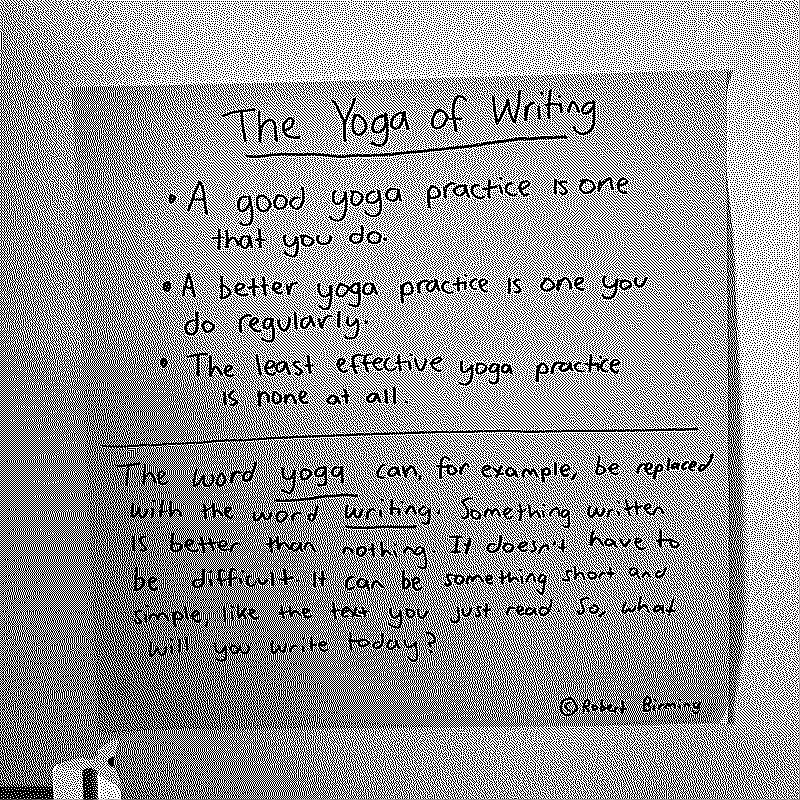 The Yoga of Writing
• A good yoga practice is one
that you do.
• A better yoga practice is one you
do regularly.
• The least effective yoga practice
is none at all.
The word yoga can, for example, be replaced
with the word writing. Something written
is better than nothing. It doesn't have to
be difficult. It can be something short and
simple, like the text you just read. So, what
will you write today?
© Robert Birming